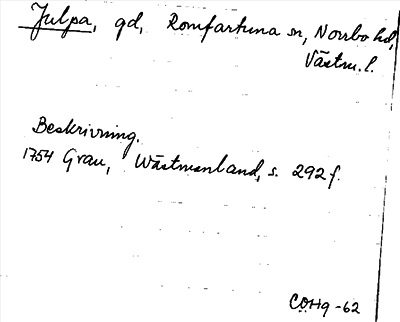 Julpa, gd, Romfartuna sn, Norrbo hd,
Västm. l.
Beskrivning.
1754 Grau, Wästmanland, s. 292 f.
COHg -62